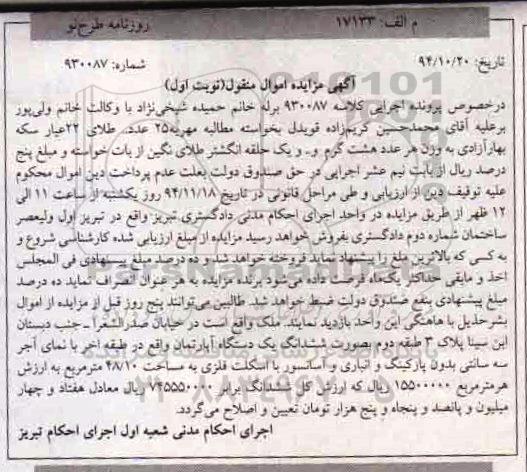 م الف: ۱۷۱۳۳
روزنامه طرح نو
تاریخ: ۹۴/۱۰/۲۰
شماره: ۹۳۰۰۸۷
آگهی مزایده اموال منقول(نوبت اول)
درخصوص پرونده اجرایی کلاسه ۹۳۰۰۸۷ برله خانم حمیده شیخی‌نژاد با وکالت خانم ولی‌پور
برعلیه آقای محمدحسین کریم‌زاده قویدل بخواسته مطالبه مهریه۲۵ عدد، طلای ۲۲عیار سکه
بهارآزادی به وزن هر عدد هشت گرم و.. و یک حلقه انگشتر طلای نگین از بابت خواسته و مبلغ پنج
درصد ریال از بابت نیم عشر اجرایی در حق صندوق دولت بعلت عدم پرداخت دین اموال محکوم
علیه توقیف دین از ارزیابی و طی مراحل قانونی در تاریخ ۹۴/۱۱/۱۸ روز یکشنبه از ساعت ۱۱ الی
۱۲ ظهر از طریق مزایده در واحد اجرای احکام مدنی دادگستری تبریز واقع در تبریز اول ولیعصر
ساختمان شماره دوم دادگستری بفروش خواهد رسید مزایده از مبلغ ارزیابی شده کارشناسی شروع و
به کسی که بالاترین ملغ را پیشنهاد نماید فروخته خواهد شد و ده درصد مبلغ پیشنهادی فی المجلس
اخذ و مابقی حداکثر یک‌ماه فرصت داده می‌شود برنده مزایده به هر عنوان انصراف نماید ده درصد
مبلغ پیشنهادی بنفع صندوق دولت ضبط خواهد شد. طالبین می‌توانند پنج روز قبل از مزایده از اموال
بشرح‌ذیل با هاهنگی این واحد بازدید نمایند. ملک واقع است در خیابان صدرالشعرا ـ جنب دبستان
ابن سینا پلاک ۳ طبقه دوم بصورت ششدانگ یک دستگاه آپارتمان واقع در طبقه آخر با نمای آجر
سه سانتی بدون پارکینگ و انباری و آسانسور با اسکلت فلزی به مساحت ۴۸/۱۰ مترمربع به ارزش
هرمترمربع ۱۵۵۰۰۰۰۰ ریال که ارزش کل ششدانگ برابر ۷۴۵۵۵۰۰۰۰ ریال معادل هفتاد و چهار
میلیون و پانصد و پنجاه و پنج هزار تومان تعیین و اصلاح می‌گردد.
اجرای احکام مدنی شعبه اول اجرای احکام تبریز